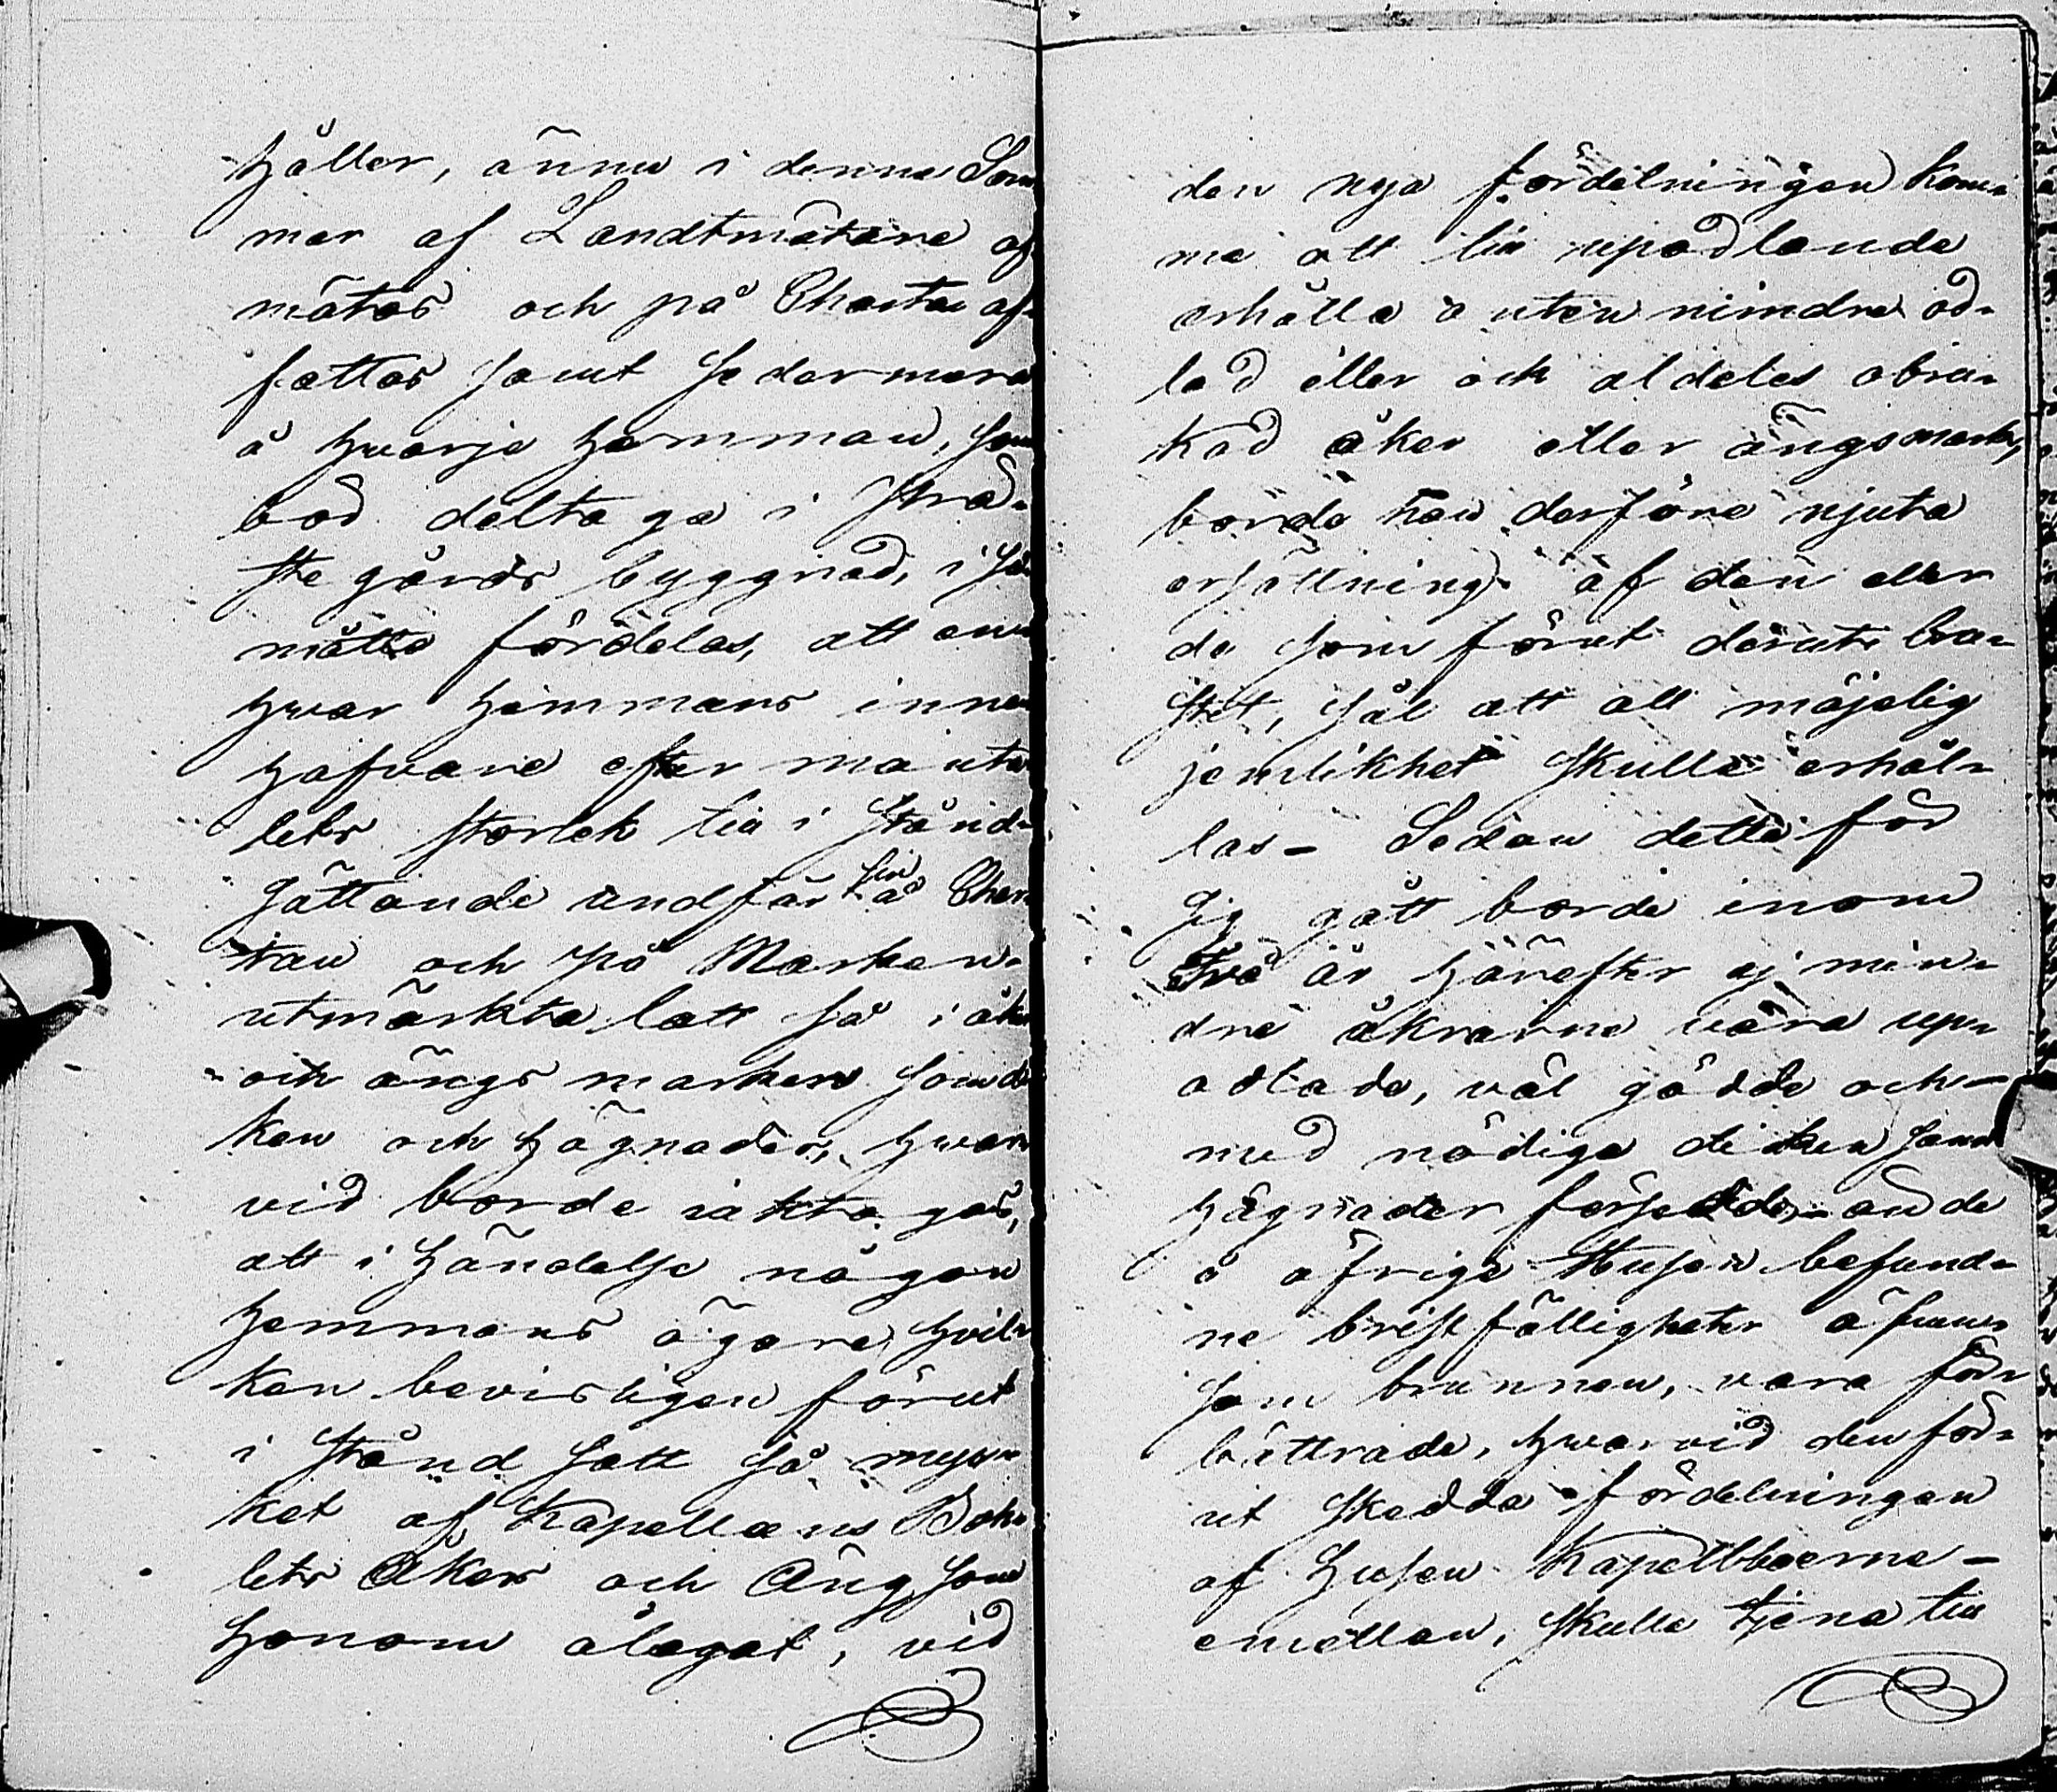 håller, ännu i denna Som
mar af Landtmätare af
mätas och på Charta af
fattas samt sedermera
å hwarje hemman, som
bör deltaga i Prä-
stegårds byggnad, i så
måtto fördelas, att en
hwar hemmans inne
hafvare efter manta
lets storlek till i stånd-
sättande undfår sin å Char
tan och på Marken
utmärkta lått så i åker
och ängs marken som di
ken och hägnader, hwar
vid borde iakttagas,
att i händelse någon
hemmans ägare, hvil
ken bevisligen förut
i stånd satt så myc-
ket af Kapellans Bohl
lets Åker och Äng, som
honom ålegat, vid
den nya fördelningen kom-
me att till upodlande
erhålla en mindre od-
lad eller ock aldeles obru-
kad åker eller ängsmark,
borde han derföre njuta
ersättning af den eller
de som förut deruti bru-
stit, så att all möjelig
jemlikhet skulle erhål-
las - Sedan detta för
sig gått borde inom
två år härefter ej min-
dre åkrarne vara up-
odlade, väl gödde och
med nödiga diken samt
hägnader försedde, än de
å öfrige Husen befund-
ne bristfälligheter äfven-
som brunnen, vara för-
bättrade, hwarvid den för-
ut skedda fördelningen
af husen Kapellboerne
emellan, skulle tjena till